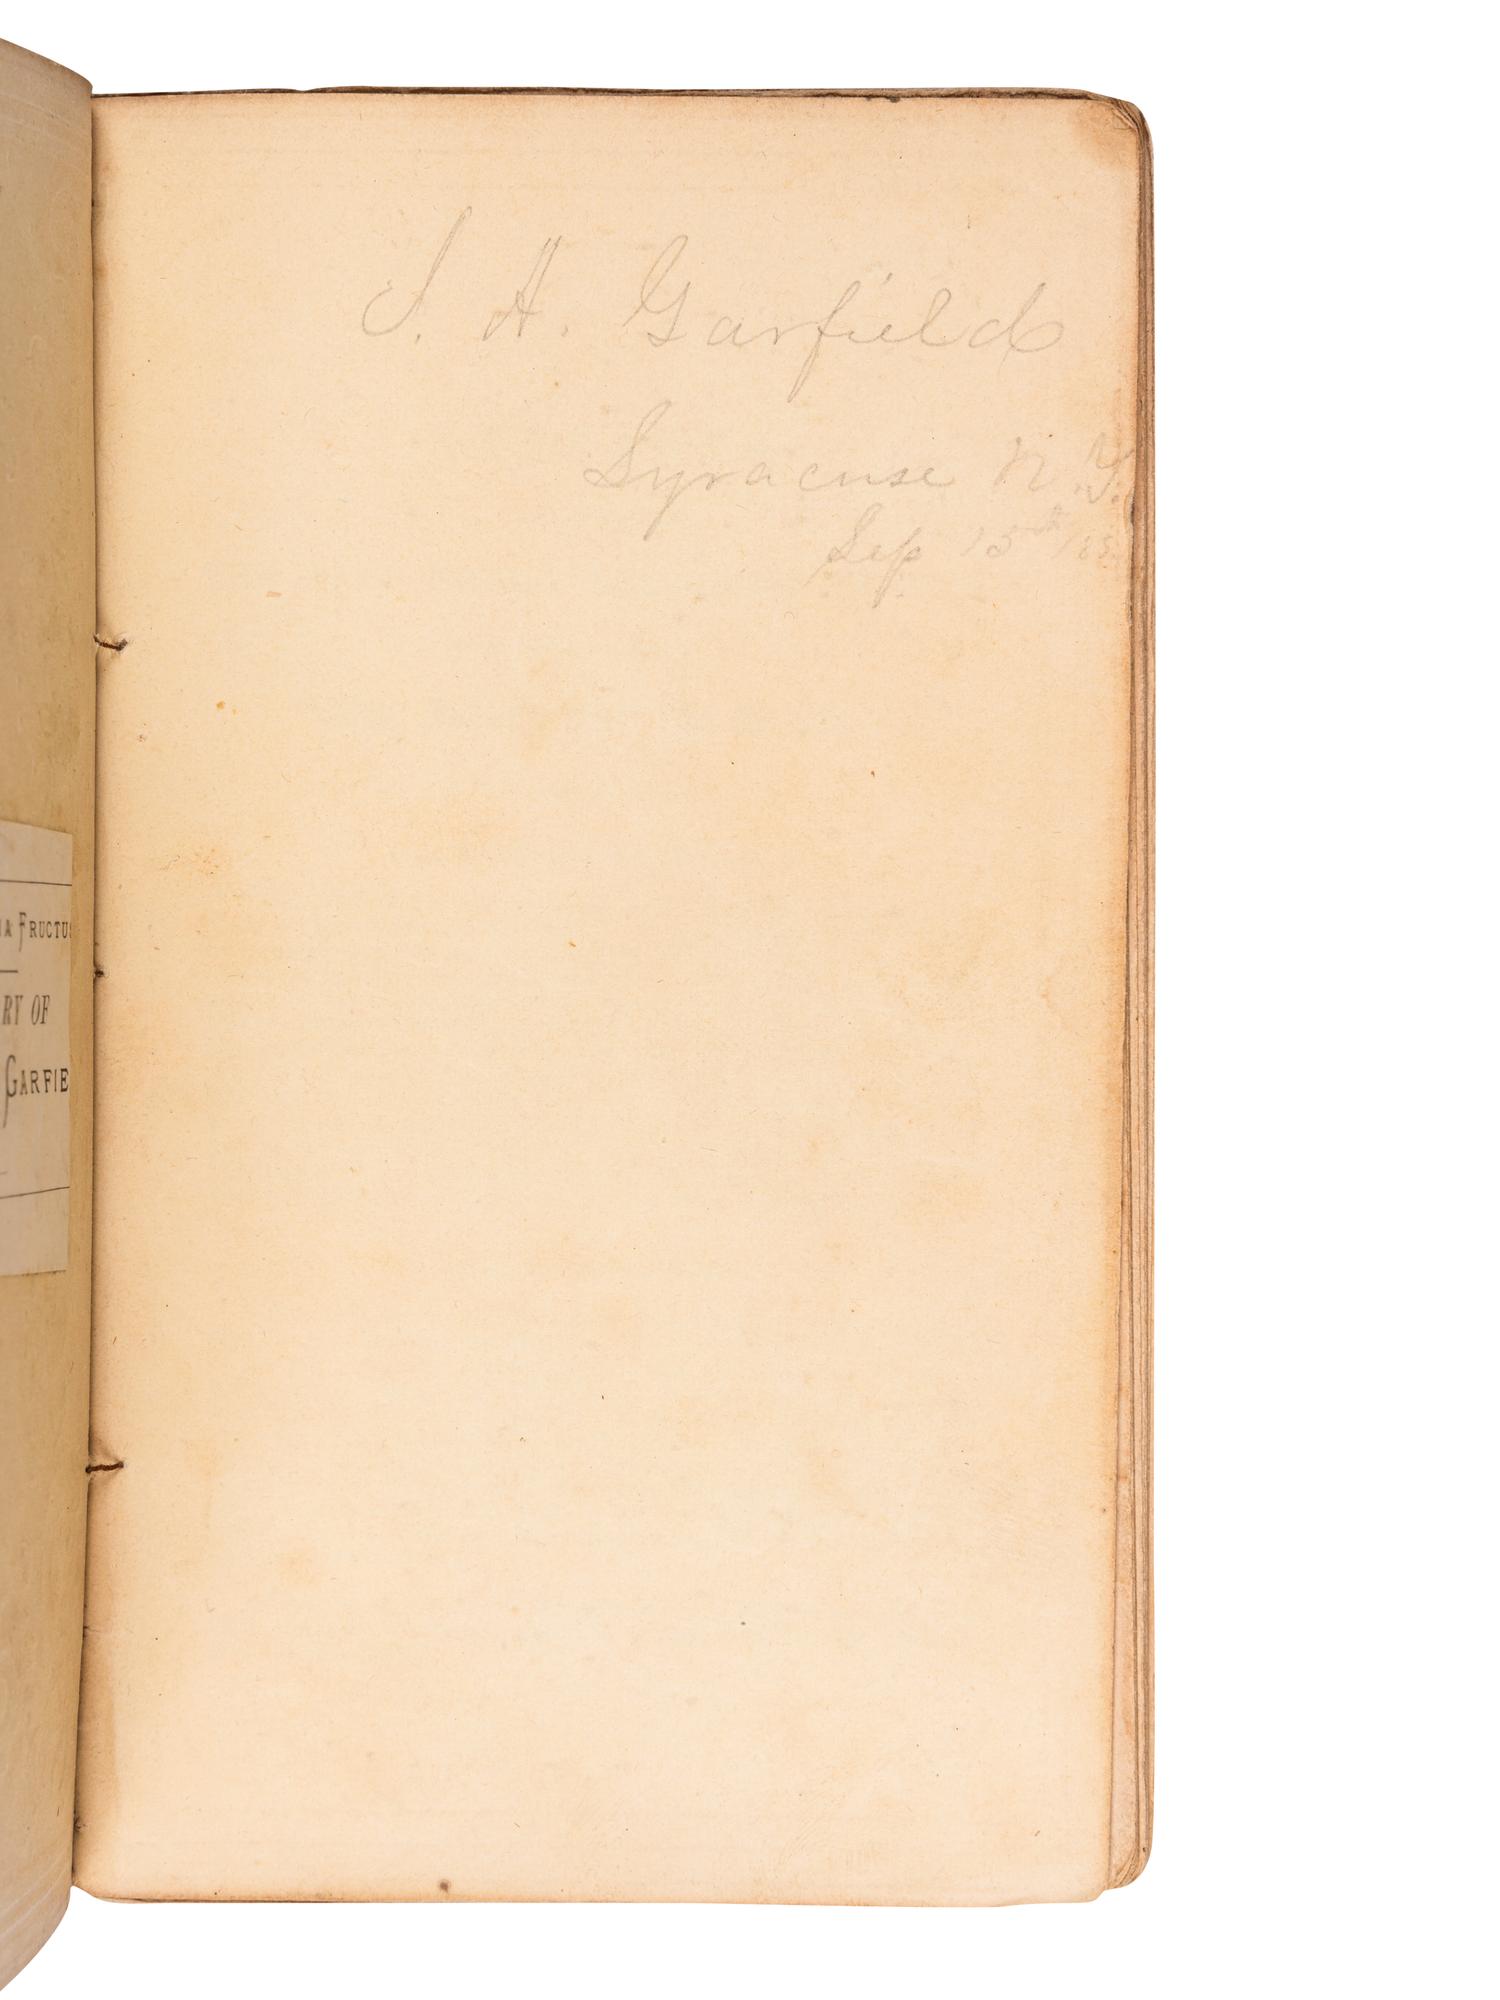 IA FRUCTUS
RY OF
GARFIE
S. A. Garfield
Syracuse N.Y.
Sep 15th